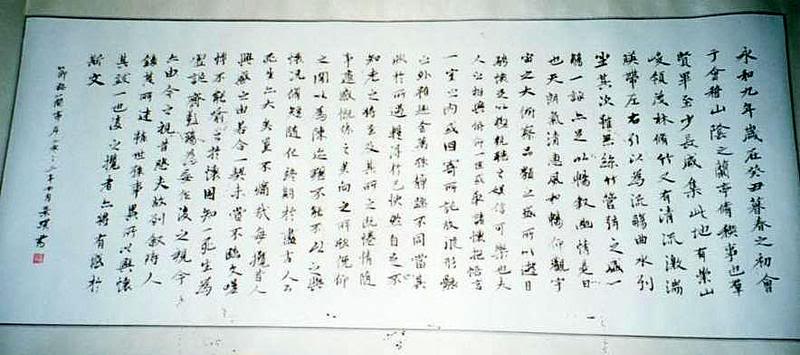 永和九年歲在癸丑暮春之初會
于會稽山陰之蘭亭脩稧事也羣
賢畢至少長咸集此地有崇山
峻領茂林脩竹又有清流激湍
暎帶左右引以為流觴曲水列
坐其次雖無絲竹管弦之盛一
觴一詠亦足以暢敘幽情是日
也天朗氣清惠風和暢仰觀宇
宙之大俯察品類之盛所以遊目
騁懷足以極視聽之娛信可樂也夫
人之相與俯仰一世或取諸懷抱悟言
一室之內或因寄所託放浪形骸
之外雖趣舍萬殊靜躁不同當其
欣於所遇暫得於己快然自足不
知老之將至及其所之既倦情隨
事遷感慨係之矣向之所欣俛仰
之間以為陳迹猶不能不以之興
懷況脩短隨化終期於盡古人云
死生亦大矣豈不痛哉每攬昔人
興感之由若合一契未嘗不臨文嗟
悼不能喻之於懷固知一死生為
虛誕齊彭殤為妄作後之視今
亦由今之視昔悲夫故列敘時人
錄其所述雖世殊事異所以興懷
其致一也後之攬者亦將有感於
斯文
節臨蘭亭序 年十月 書